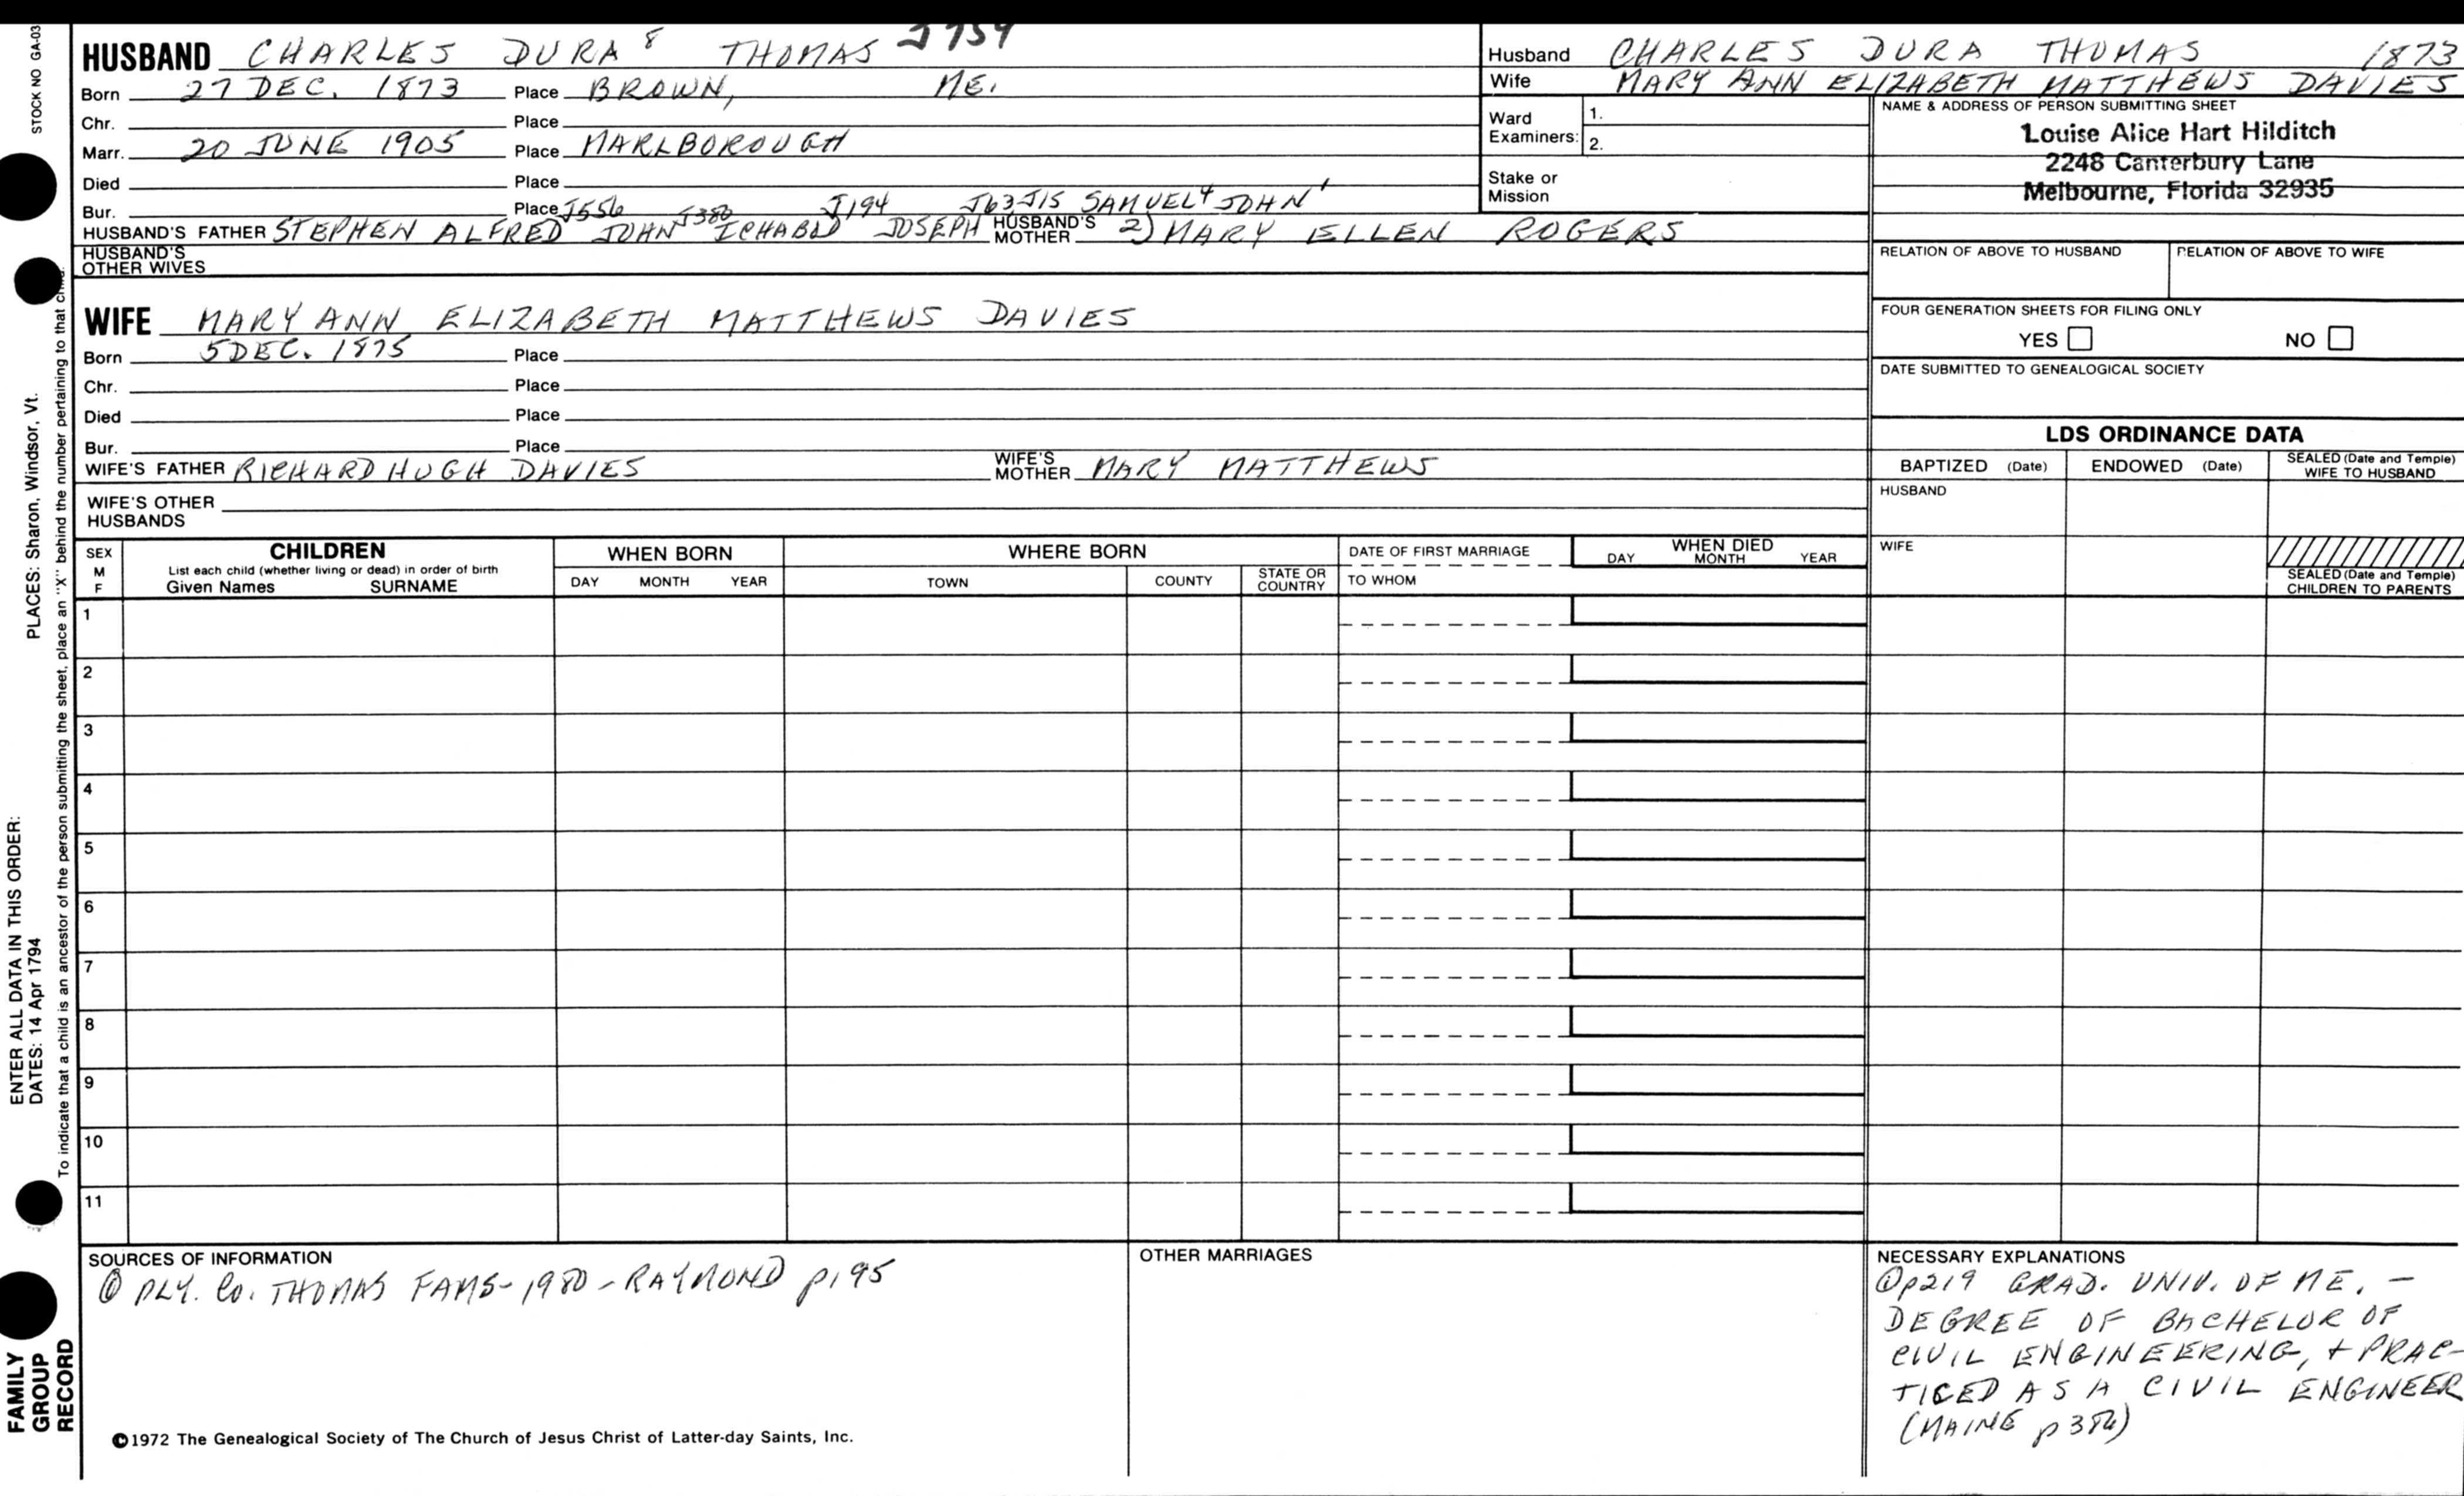 STOCK NO GA-03
HUSBAND CHARLES DURA 8 THOMAS J754
Born 27 DEC. 1873 Place BROWN, ME.
Chr. Place
Marr. 20 JUNE 1905 Place MARLBOROUGH
Died Place
Bur. Place J556 J380 J194 J63 J15 SAMUEL 4 JOHN 1
HUSBAND'S FATHER STEPHEN ALFRED JOHN ICHABOD JOSEPH HUSBAND'S MOTHER 2) MARY ELLEN ROGERS
HUSBAND'S OTHER WIVES
WIFE MARY ANN ELIZABETH MATTHEWS DAVIES
Born 5 DEC. 1875 Place
Chr. Place
Died Place
Bur. Place
WIFE'S FATHER RICHARD HUGH DAVIES WIFE'S MOTHER MARY MATTHEWS
WIFE'S OTHER HUSBANDS
Husband CHARLES DURA THOMAS 1873
Wife MARY ANN ELIZABETH MATTHEWS DAVIES
Ward Examiners: 1.
2.
Stake or Mission
NAME & ADDRESS OF PERSON SUBMITTING SHEET
Louise Alice Hart Hilditch
2248 Canterbury Lane
Melbourne, Florida 32935
RELATION OF ABOVE TO HUSBAND RELATION OF ABOVE TO WIFE
FOUR GENERATION SHEETS FOR FILING ONLY
YES NO
DATE SUBMITTED TO GENEALOGICAL SOCIETY
LDS ORDINANCE DATA
BAPTIZED (Date) ENDOWED (Date) SEALED (Date and Temple) WIFE TO HUSBAND
HUSBAND
WIFE
SEALED (Date and Temple) CHILDREN TO PARENTS
SEX M F
CHILDREN
List each child (whether living or dead) in order of birth
Given Names SURNAME
WHEN BORN
DAY MONTH YEAR
WHERE BORN
TOWN COUNTY STATE OR COUNTRY
DATE OF FIRST MARRIAGE
TO WHOM
WHEN DIED
DAY MONTH YEAR
1
2
3
4
5
6
7
8
9
10
11
SOURCES OF INFORMATION
① PLY. Co. THOMAS FAMS-1980-RAYMOND p195
©1972 The Genealogical Society of The Church of Jesus Christ of Latter-day Saints, Inc.
OTHER MARRIAGES
NECESSARY EXPLANATIONS
① p219 GRAD. UNIV. OF ME. -
DEGREE OF BACHELOR OF
CIVIL ENGINEERING, + PRAC-
TICED AS A CIVIL ENGINEER
(MAINE
PLACES: Sharon, Windsor, Vt.
ENTER ALL DATA IN THIS ORDER:
DATES: 14 Apr 1794
To indicate that a child is an ancestor of the person submitting the sheet, place an "X" behind the number pertaining to that child.
FAMILY
GROUP
RECORD